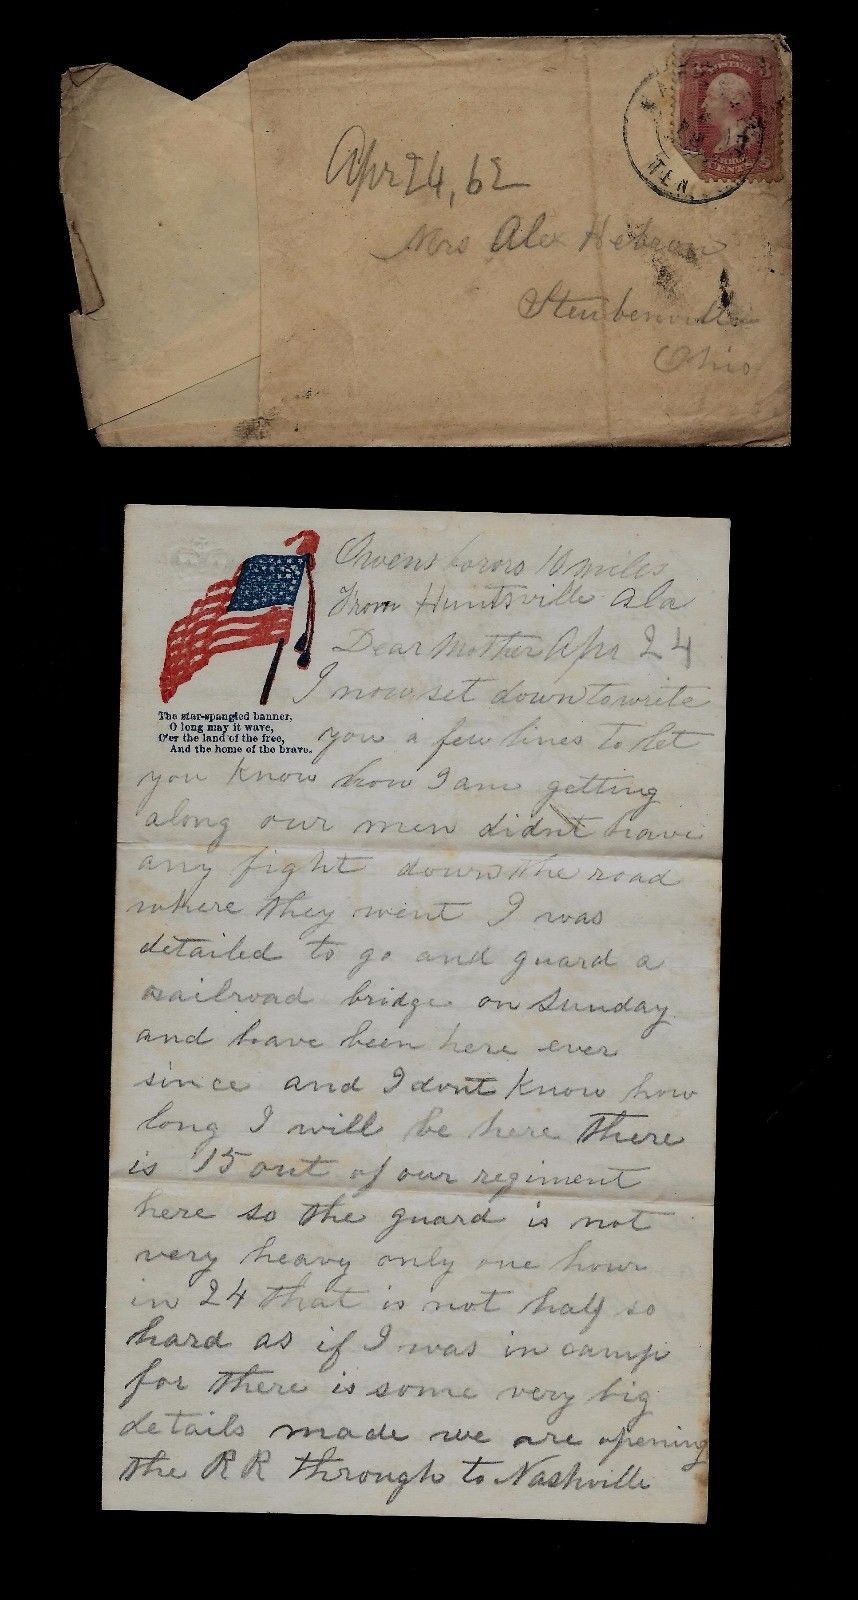 Apr 24, 62
Mrs Alex
Steubenville
Ohio
U.S.
POSTAGE
3 3
THREE
CENTS
TEN
Owensbororo 10 miles
From Huntsville Ala
Dear Mother Apr 24
I now set down to write
you a few lines to let
The star-spangled banner,
O long may it wave,
O'er the land of the free,
And the home of the brave.
you know how I am getting
along our men didnt have
any fight down the road
where they went I was
detailed to go and guard a
railroad bridge on Sunday
and have been here ever
since and I dont know how
long I will be here there
is 15 out of our regiment
here so the guard is not
very heavy only one hour
in 24 that is not half so
hard as if I was in camp
for there is some very big
details made we are opening
the R R through to Nashville